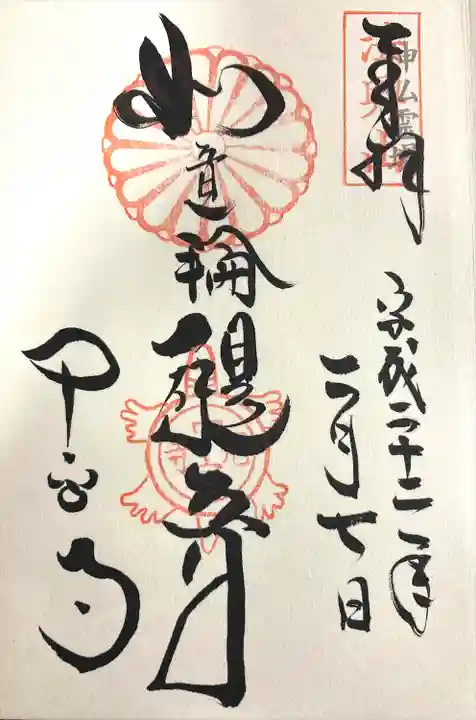 神仏霊場
奉拝
平成二十二年
二月七日
如意輪観
中宮寺